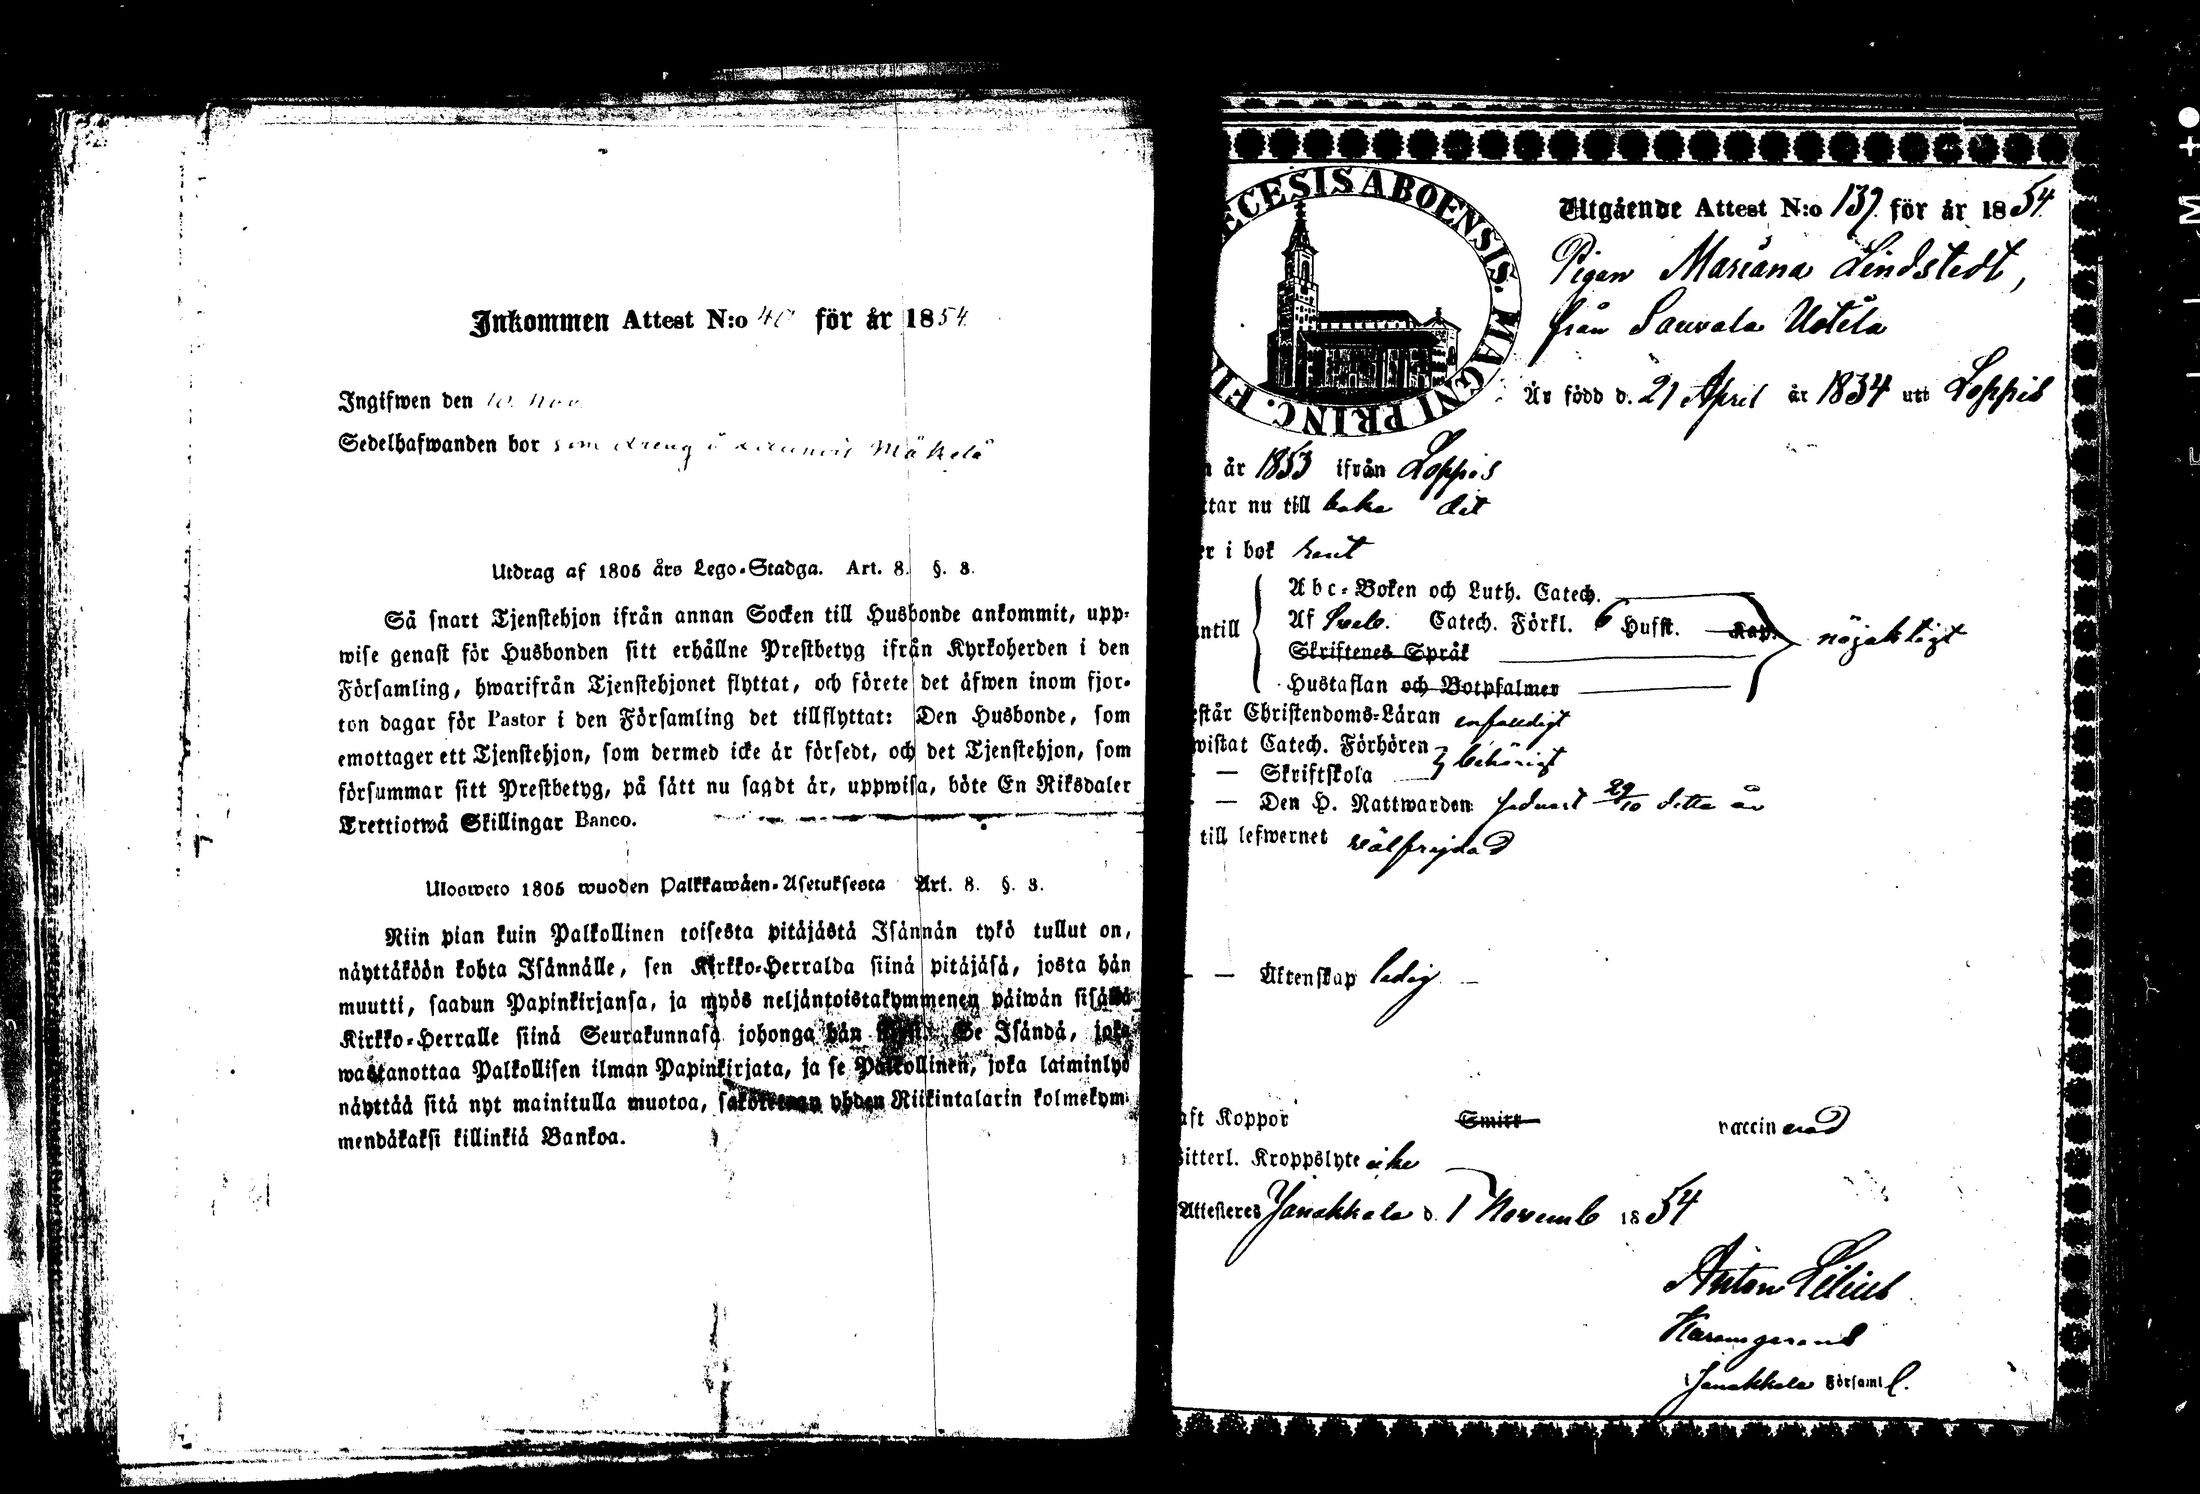 Inkommen Attest N:o 40 för år 1854
Ingifwen den 10 Nov
Sedelhafwanden bor som dreng i Mäkelä
Utdrag af 1805 års Lego-Stadga. Art. 8. §. 8.
Så snart Tjenstehjon ifrån annan Socken till Husbonde ankommit, upp-
wise genast för Husbonden sitt erhållne Prestbetyg ifrån Kyrkoherden i den
Församling, hwarifrån Tjenstehjonet flyttat, och förete det äfwen inom fjor-
ton dagar för Pastor i den Församling det tillflyttat: Den Husbonde, som
emottager ett Tjenstehjon, som dermed icke är försedt, och det Tjenstehjon, som
försummar sitt Prestbetyg, på sätt nu sagdt är, uppwisa, böte En Riksdaler
Trettiotwå Skillingar Banco.
Ulosweto 1805 wuoden Palkkawäen-Asetuksesta Art. 8. §. 8.
Niin pian kuin Palkollinen toisesta pitäjästä Isännän tykö tullut on,
näyttäköön kohta Isännälle, sen Kirkko-Herralda siinä pitäjäsä, josta hän
muutti, saadun Papinkirjansa, ja myös neljäntoistakymmenen päiwän sisällä
Kirkko-Herralle siinä Seurakunnasa johonga hän Se Isändä, joka
wastanottaa Palkollisen ilman Papinkirjata, ja se Palkollinen, joka laiminlyö
näyttää sitä nyt mainitulla muotoa, yhden Riikintalarin kolmekym-
mendäkaksi killinkiä Bankoa.
ECESIS ABOENSIS. MAGNI PRINC. FI
Utgående Attest N:o 139. för år 1854.
Pigan Mariana Lindstedt,
från Sauvala Uotila
Är född d. 21 April år 1834 uti Loppis
n år 1853 ifrån Loppis
ttar nu till baka dit
er i bok rent
Abc-Boken och Luth. Catech.
ntill Af Sveb. Catech. Förkl. 6 Hufst. Kap. nöjaktigt
Skriftenes Språk
Hustaflan och Botpsalmer
står Christendoms-Läran enfaldigt
wistat Catech. Förhören
— Skriftskola behörigt
— Den H. Nattwarden sednast 29/10 detta år
till lefwernet välfrejdad
— Äktenskap ledig
aft Koppor Smitt vaccinerad
itterl. Kroppslyte icke
Attesteres Janakkala d. 1 Novemb 1854
Anton Lilius
i Janakkala Församl.